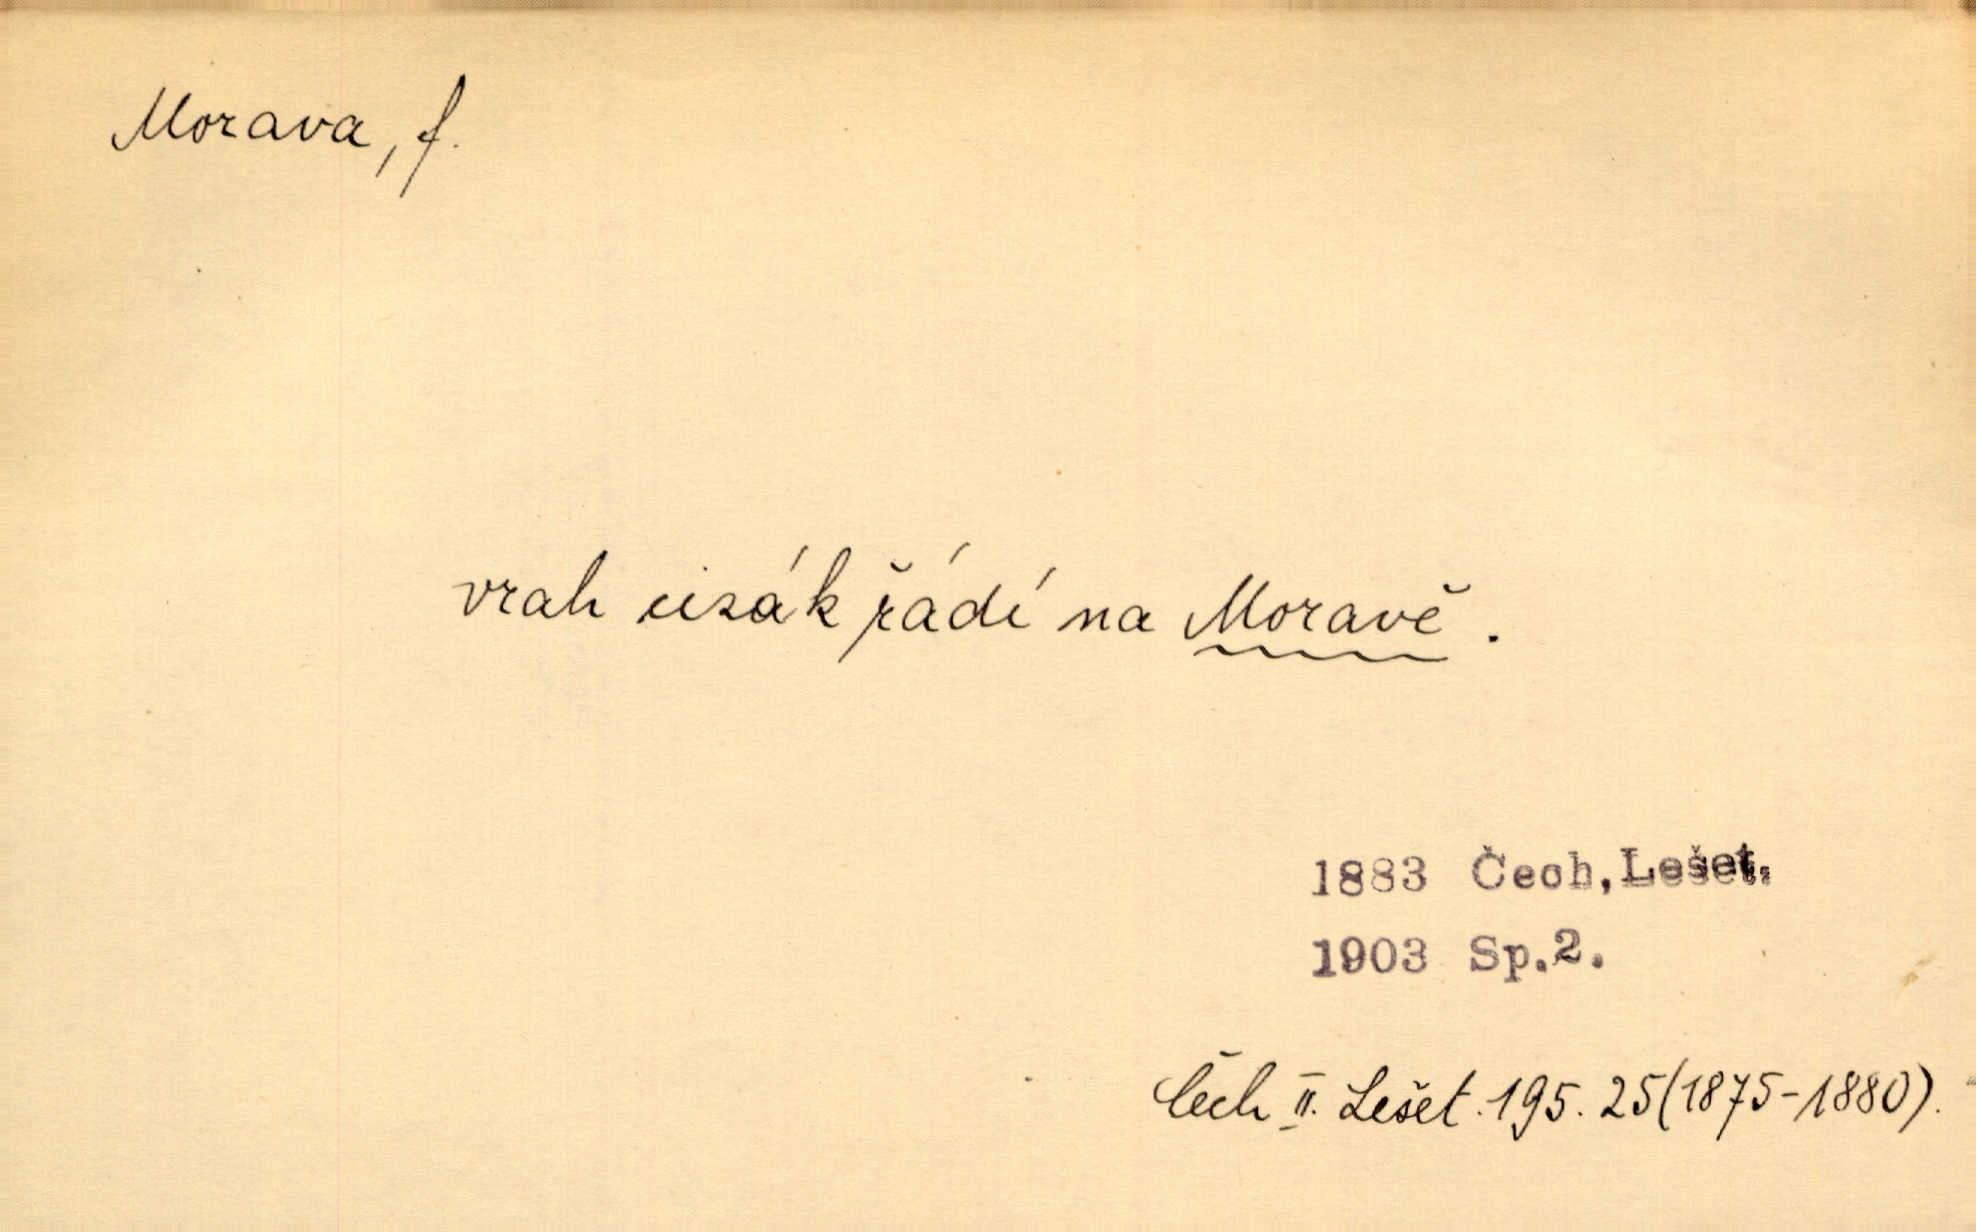 Morava, f.
vrah cizák řádí na Moravě.
1883 Čech, Lešet.
1903 Sp.2.
Čech II. Lešet. 195. 25 (1875-1880).